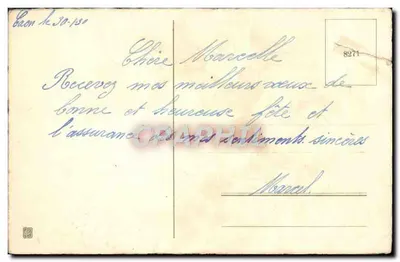 le 30-1-30
8271
Chère Marcelle
Recevez mes meilleurs vœux de
bonne et heureuse fête et
l'assurance de mes sentiments sincères
Marcel.